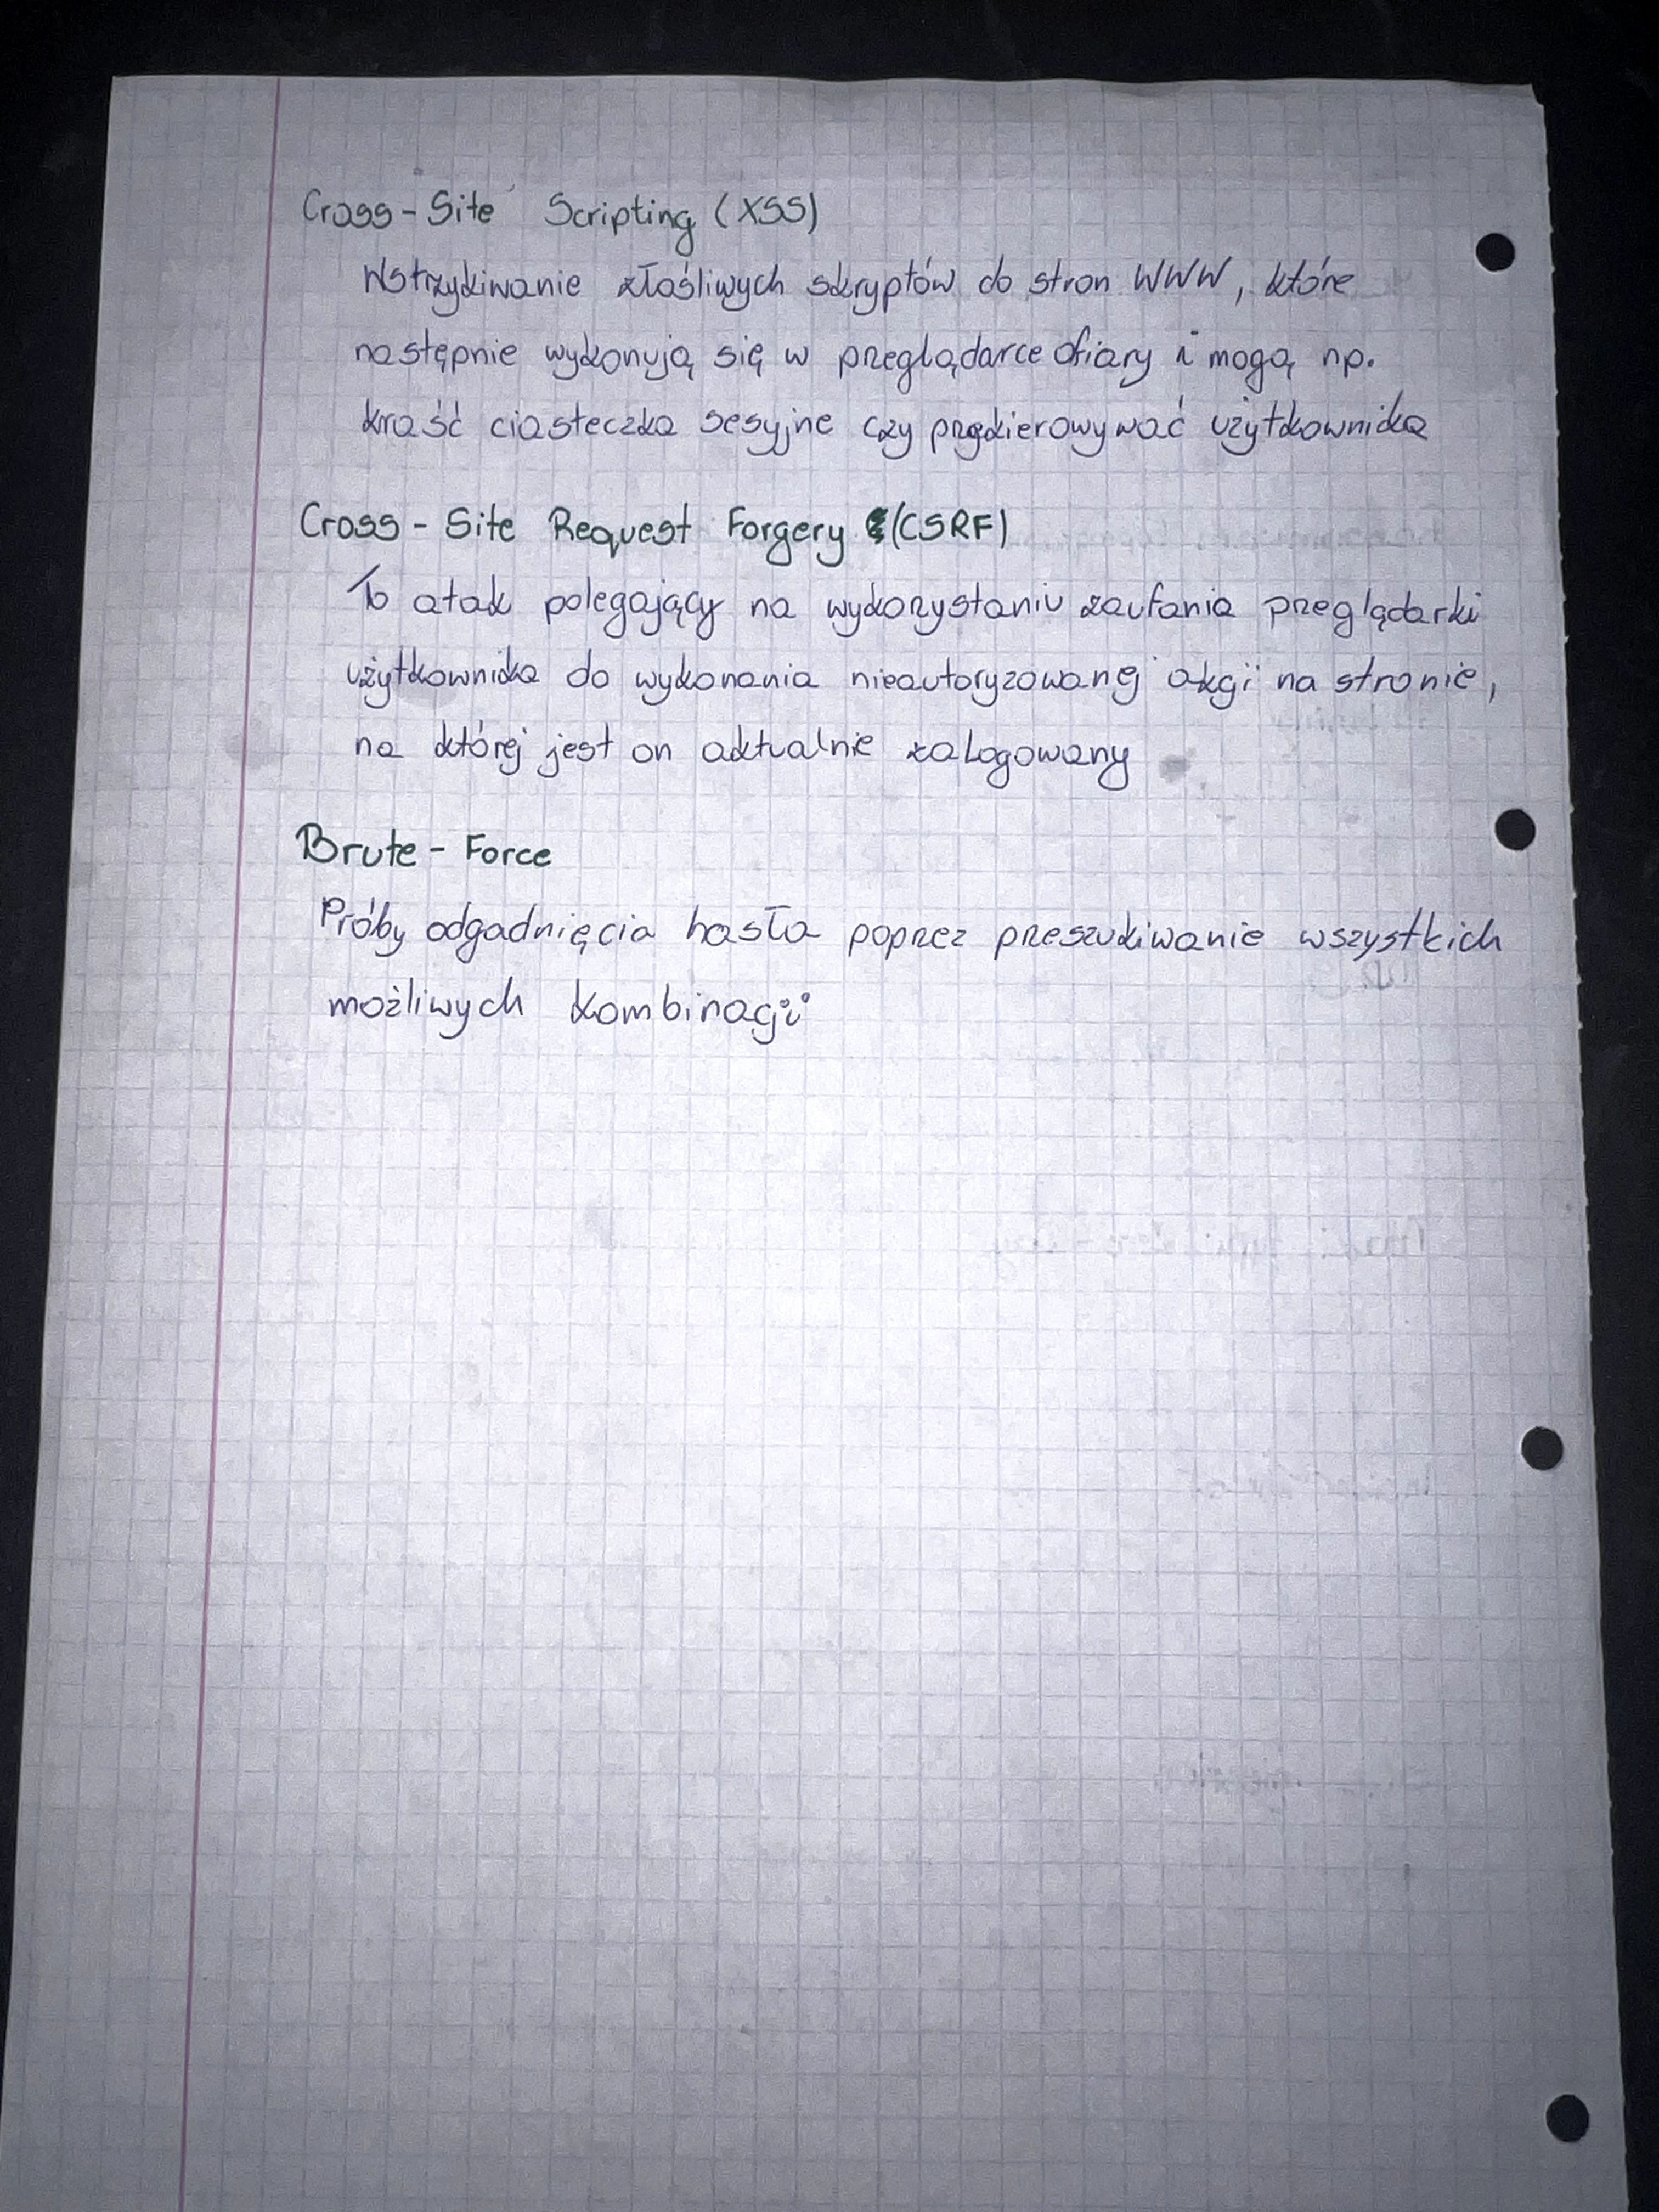 Cross-Site Scripting (XSS)
Wstrzykiwanie złośliwych skryptów do stron WWW, które
następnie wykonują się w przeglądarce ofiary i mogą np.
kraść ciasteczka sesyjne czy przekierowywać użytkownika
Cross-Site Request Forgery (CSRF)
To atak polegający na wykorzystaniu zaufania przeglądarki
użytkownika do wykonania nieautoryzowanej akcji na stronie,
na której jest on aktualnie zalogowany
Brute-Force
Próby odgadnięcia hasła poprzez przeszukiwanie wszystkich
możliwych kombinacji